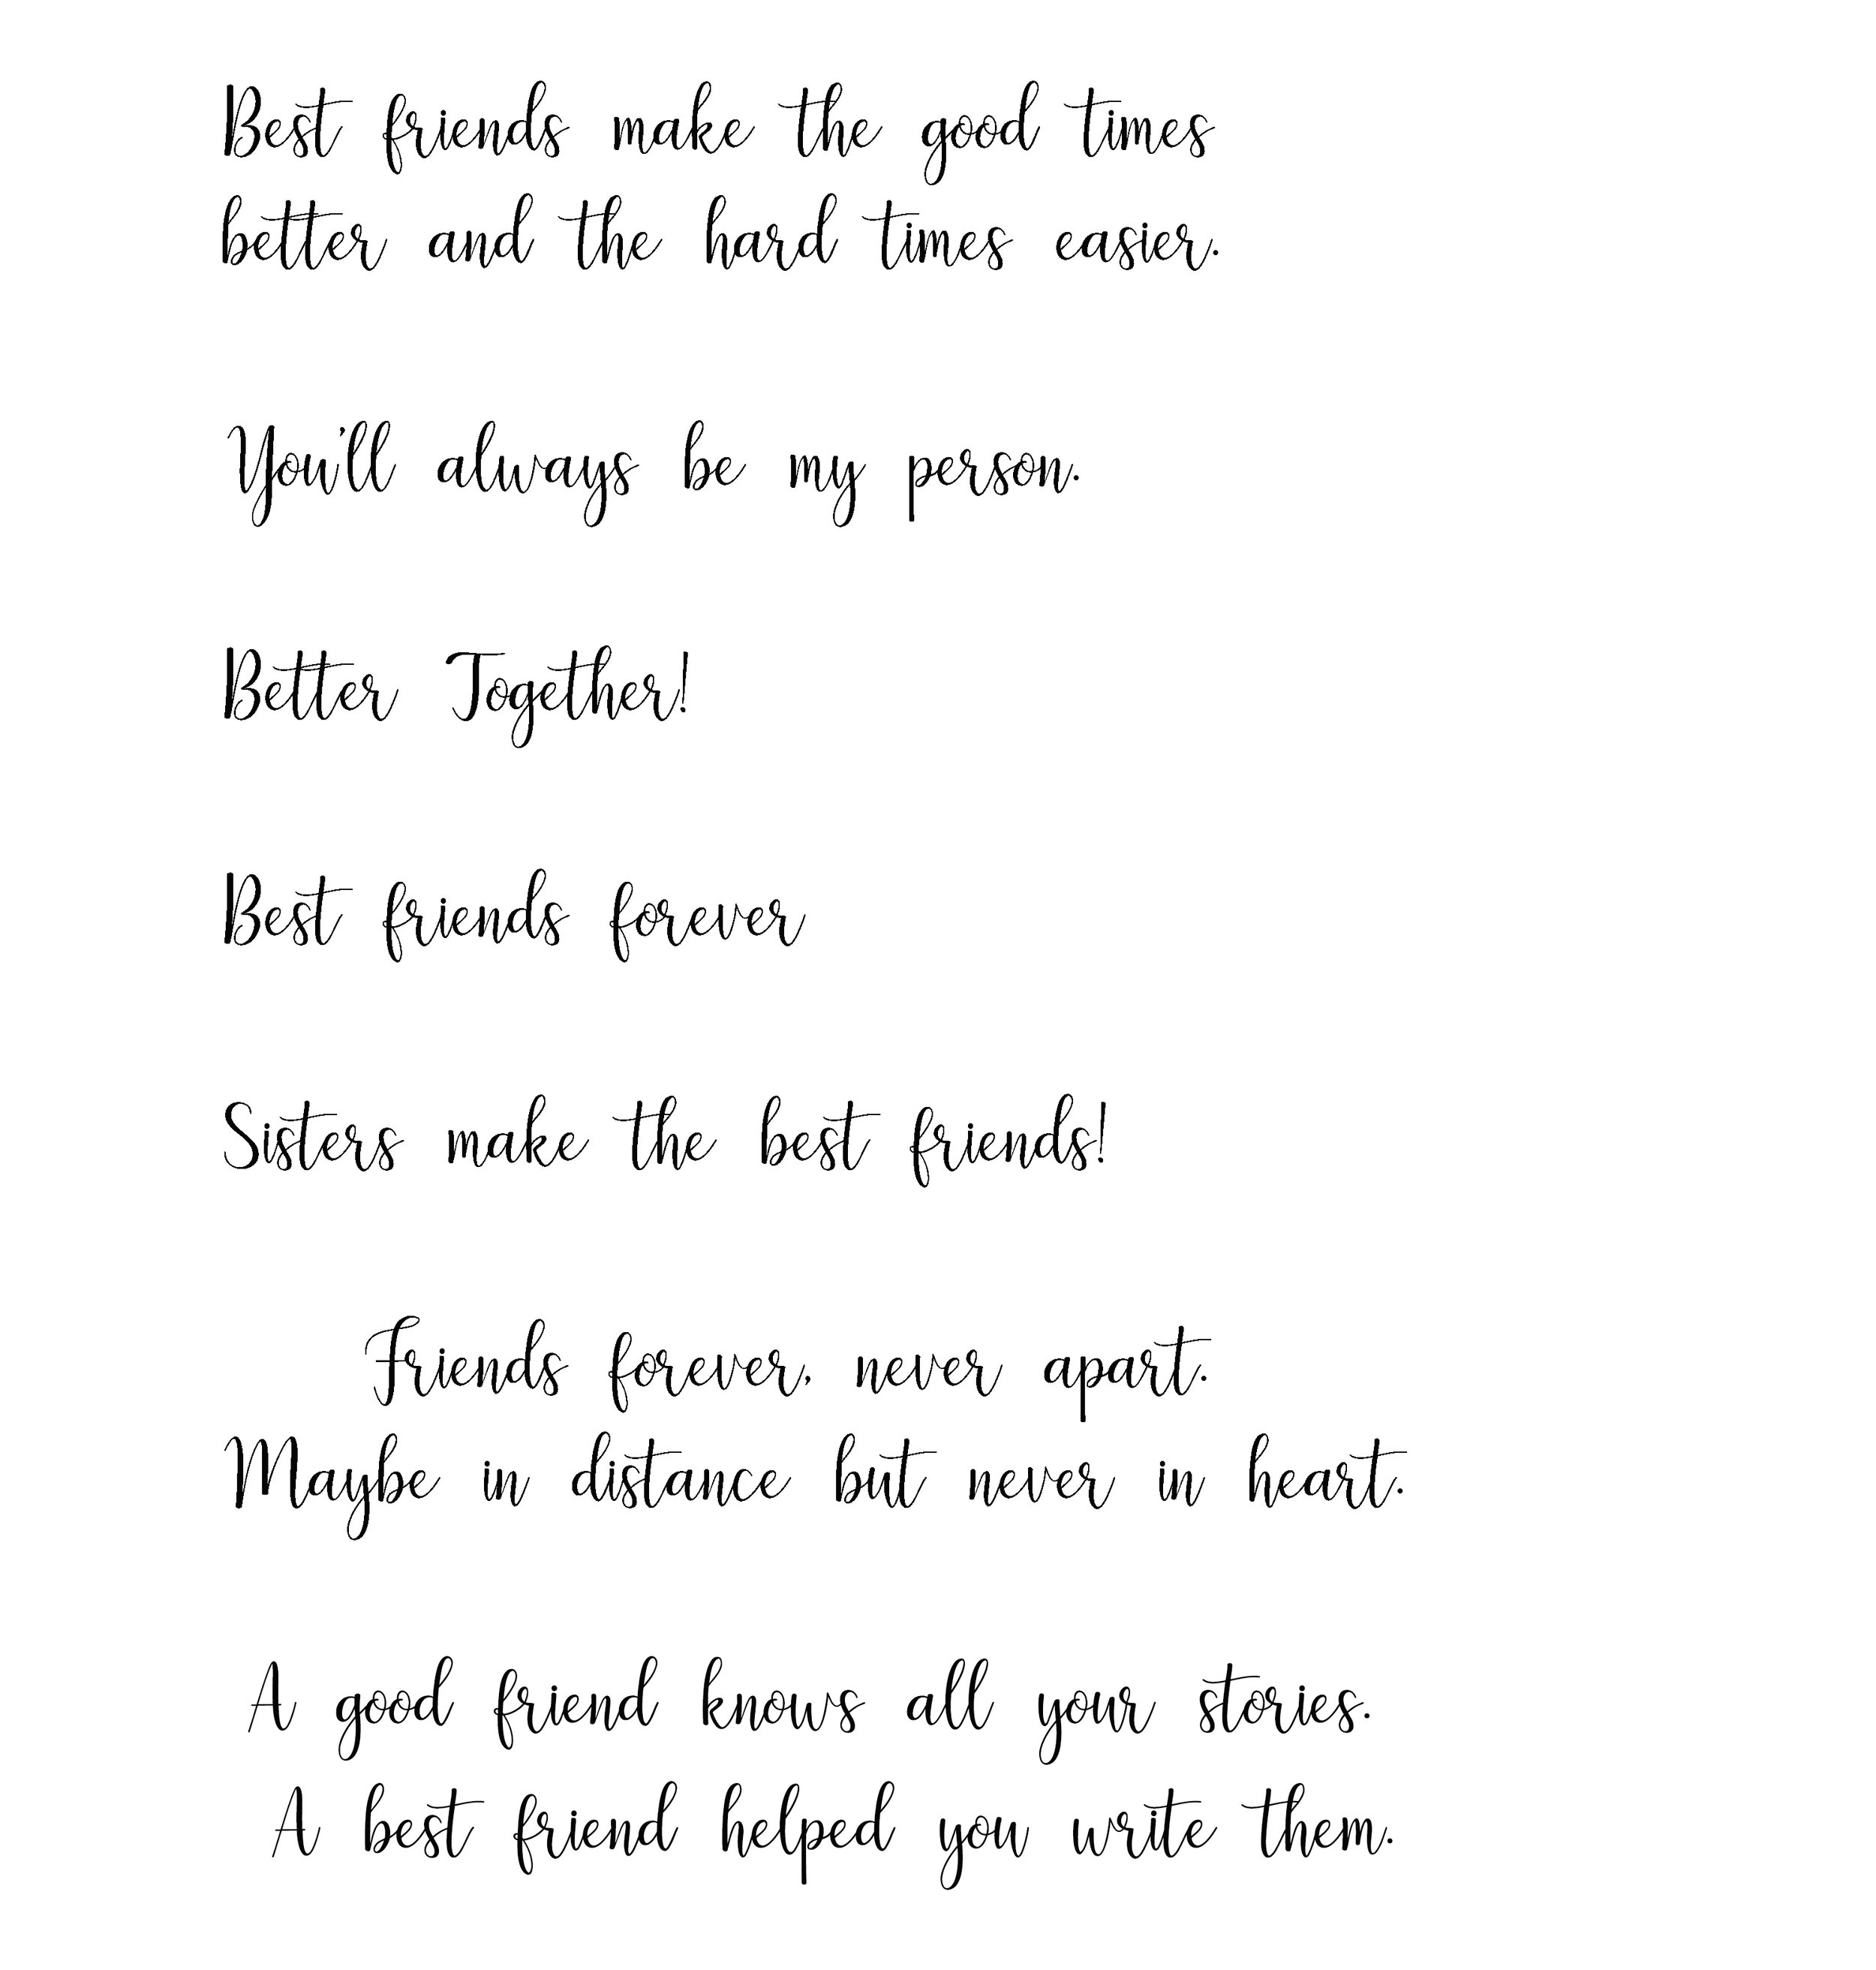 Best friends make the good times
better and the hard times easier.
You'll always be my person.
Better Together!
Best friends forever
Sisters make the best friends!
Friends forever, never apart.
Maybe in distance but never in heart.
A good friend knows all your stories.
A best friend helped you write them.